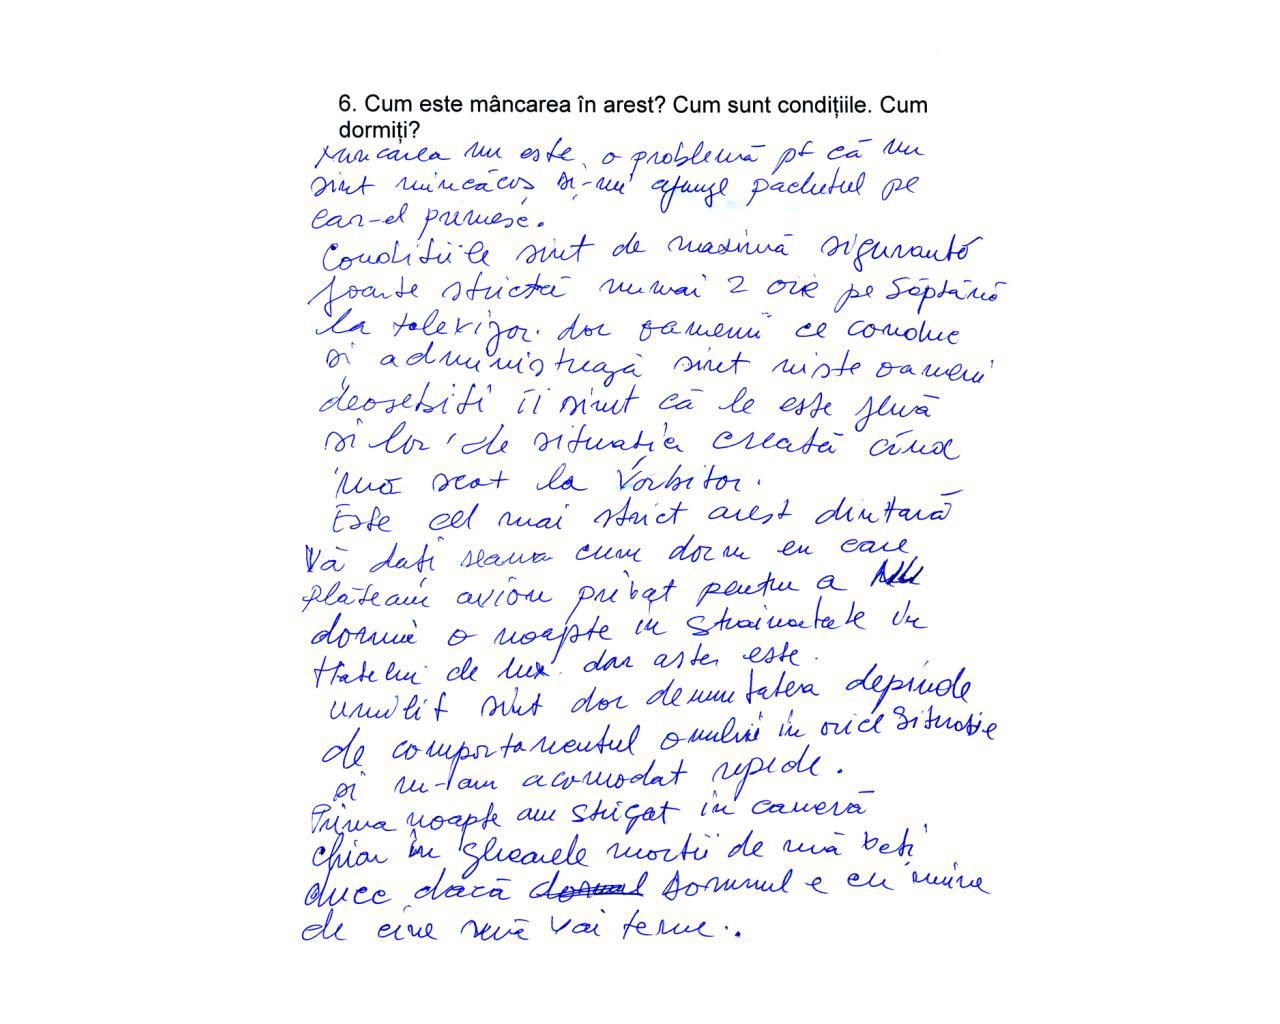 6. Cum este mâncarea în arest? Cum sunt condițiile. Cum
dormiți?
Mincarea nu este, o problemă pt că nu
sint mincăcos si-mi ajunge pachetul pe
car-el primesc.
Conditiile sint de maximă sigurantă
foarte strictă numai 2 ore pe Săptănă
la televizor. dar oamenii ce conduc
si administrează sint niste oameni
deosebiti ii simt că le este jenă
si lor de situatia creată cind
mă scot la Vorbitor.
Este cel mai strict arest dintară
Vă dati seama cum dorm eu care
plăteam avion privat pentru a Nu
dormi o noapte in Strainatate in
Hoteluri de lux. dar asta este.
umilit sint dar demnitatea depinde
de comportamentul omului in orice Situatie
si m-am acomodat repede.
Prima noapte am strigat in cameră
chiar in ghearele mortii de mă veti
duce dacă Somnul e cu mine
de cine mă voi teme..